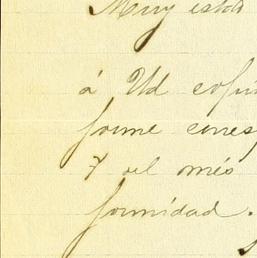 Muy esti
á Ud copi
forme corres
7 del més
formidad.